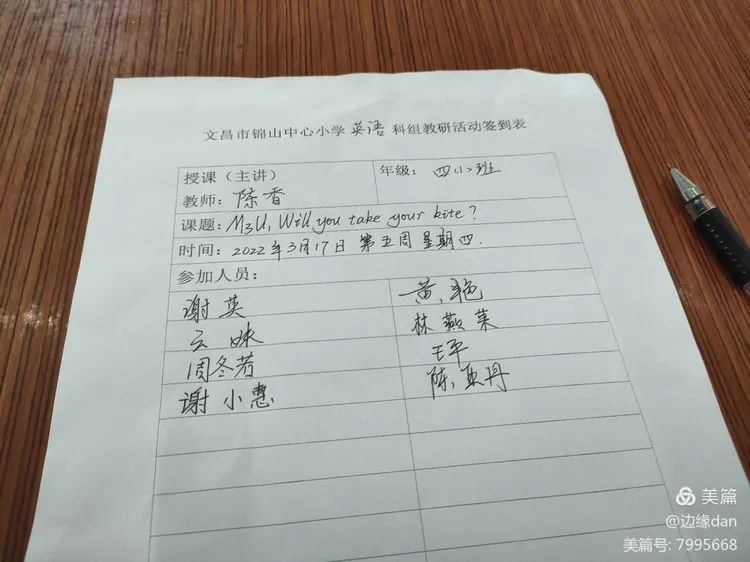 文昌市锦山中心小学 英语 科组教研活动签到表
授课（主讲）
教师：陈香
年级：四（2）班
课题：M3U1 Will you take your kite?
时间：2022年3月17日 第五周星期四.
参加人员：
谢英
黄艳
云妹
林燕菜
周冬若
王平
谢小惠
陈亚丹
美篇
@边缘dan
美篇号: 7995668